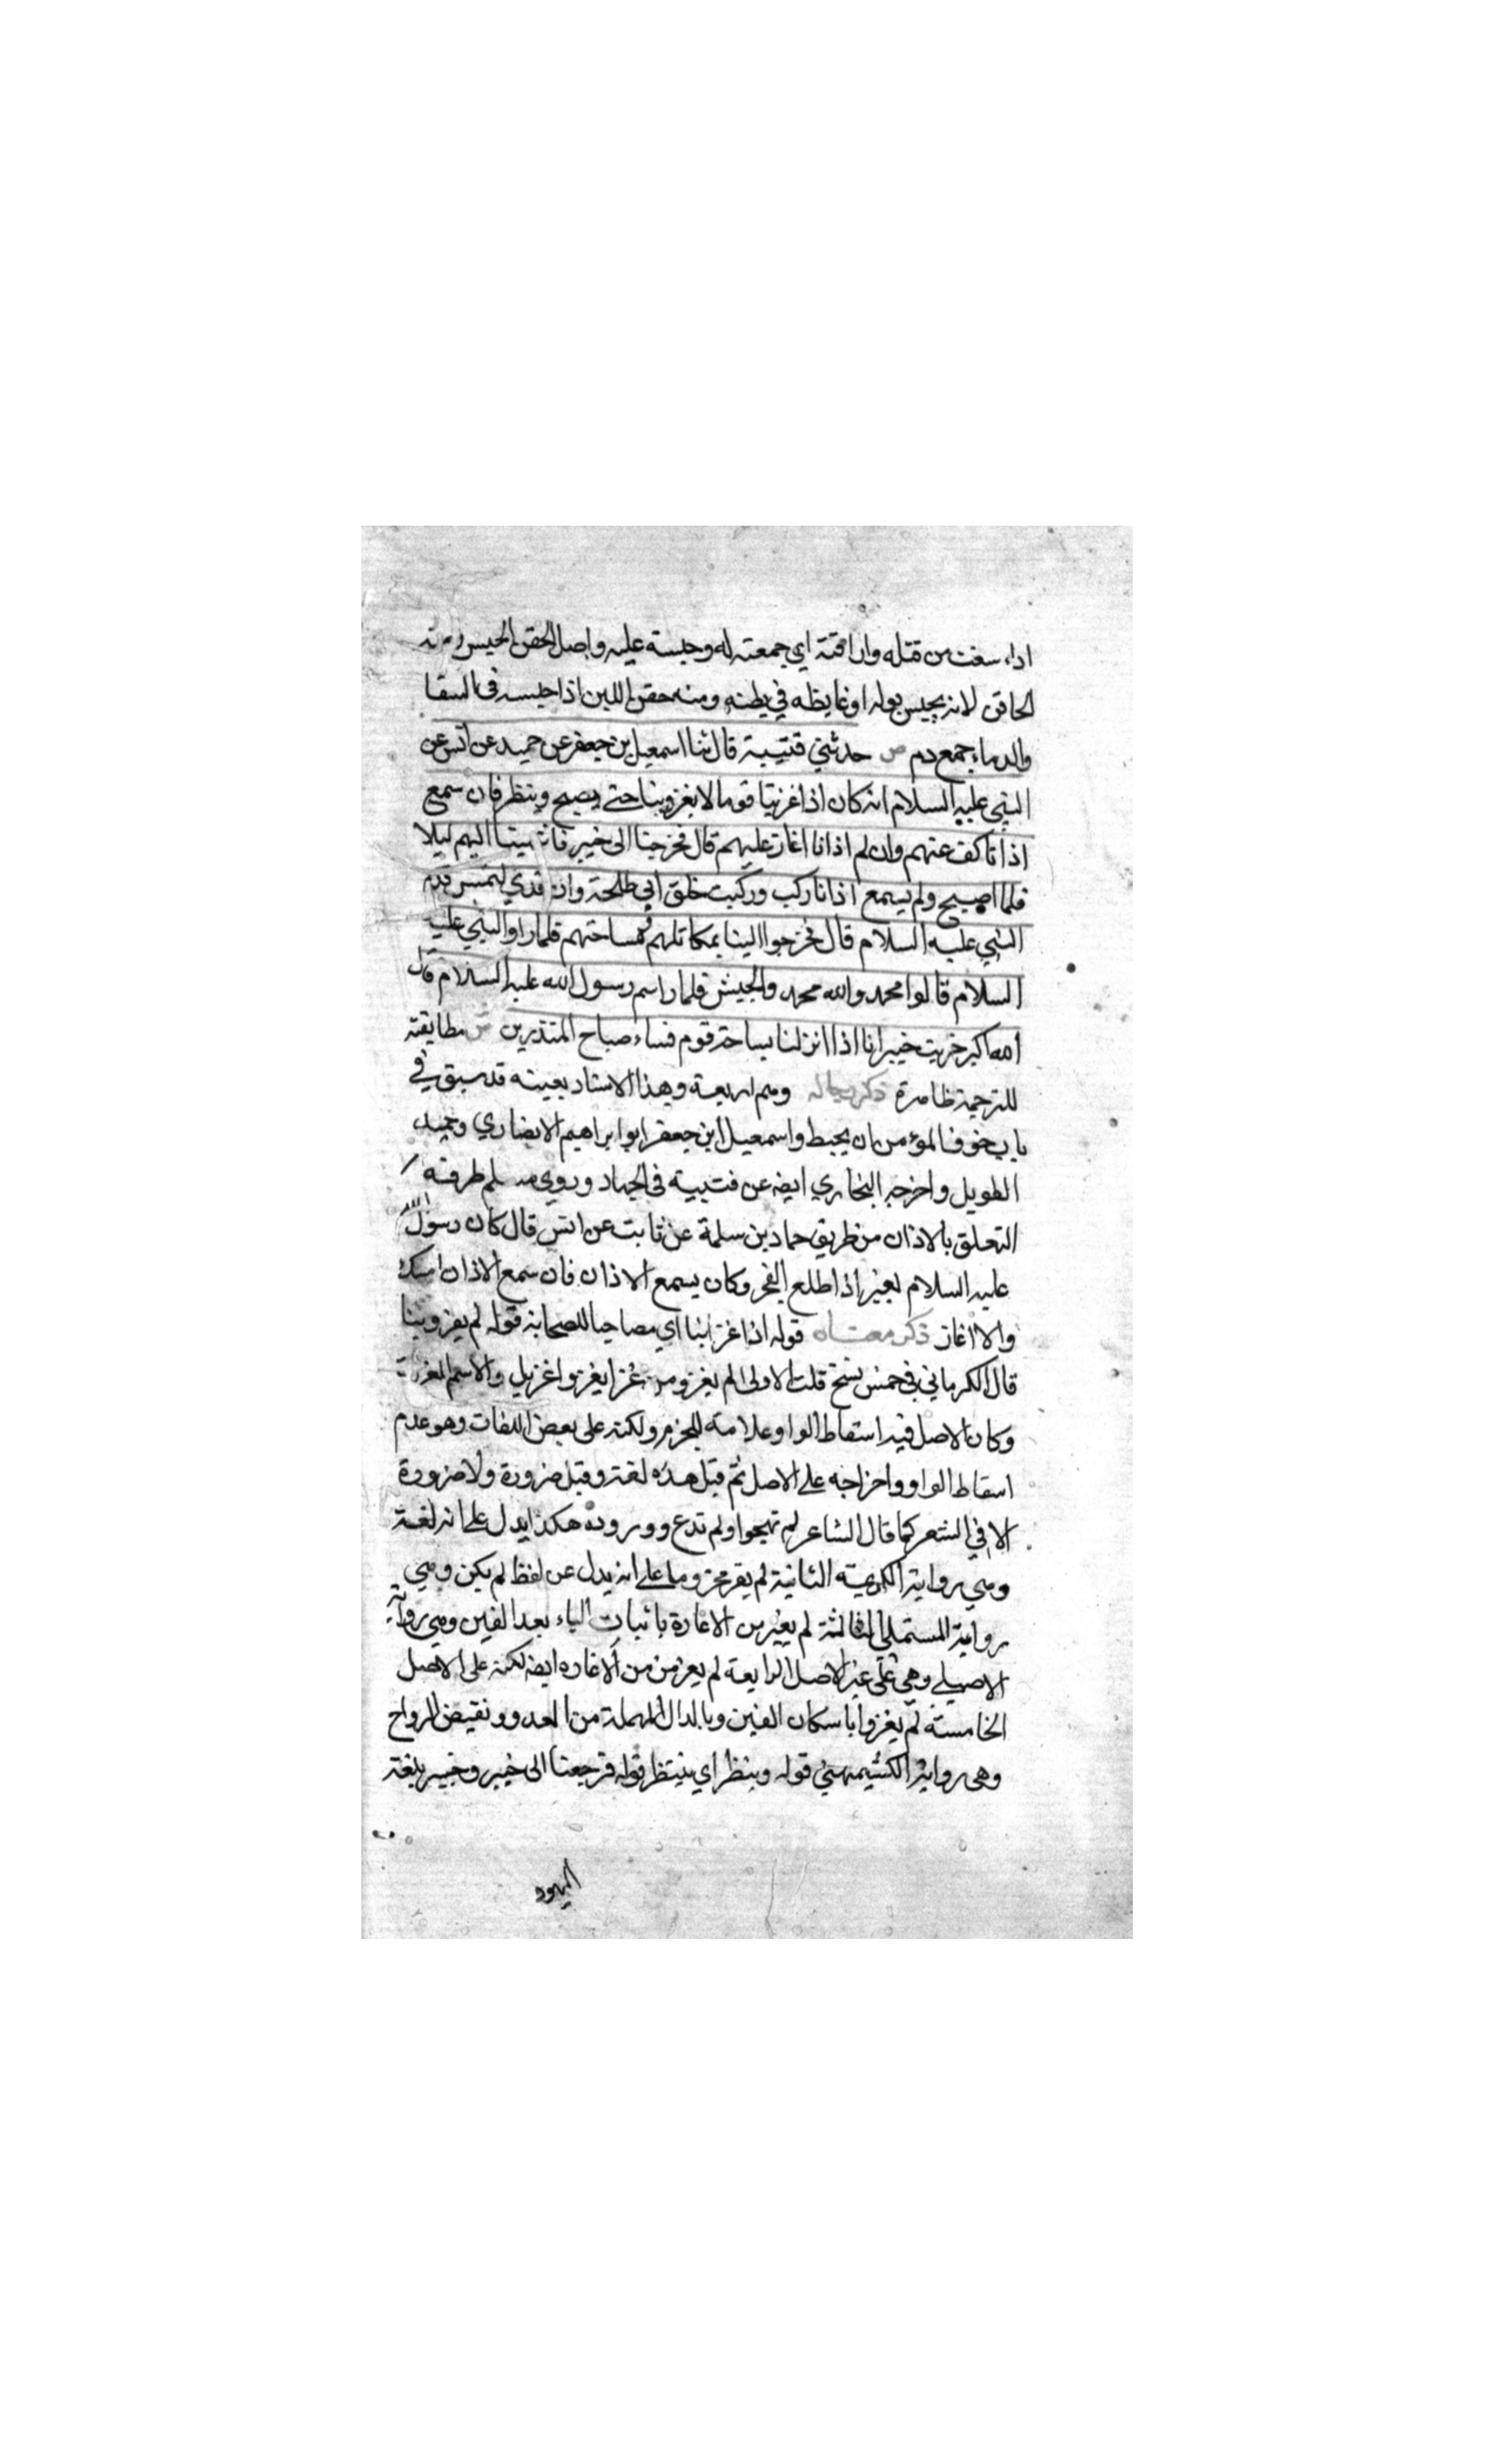 اذا سغت من قتله واراقته اي جمعته له وحبسته عليه واصل الحقن الحبس ومنه
الحاقن لانه يحبس بوله او غايظه في بطنه ومنه حقن اللبن اذا حبسه في السقا
والدماء جمع دم ص حدثني قتيبة قال ثنا اسمعيل بن جعفر عن حميد عن انس عن
النبي عليه السلام انه كان اذا غزيتا قوما لا يغزو بنا حتى يصبح وينظر فان سمع
اذانا كف عنهم وان لم اذانا اغار عليهم قال فخرجنا الى خيبر فانتهينا اليهم ليلا
فلما اصبح ولم يسمع اذانا ركب وركبت خلف ابي طلحة وان قدمي لتمس قدم
النبي عليه السلام قال فخرجوا الينا بمكاتلهم ومساحتهم فلما راوا النبي عليه
السلام قالوا محمد والله محمد والجيش فلما راسم رسول الله عليه السلام قال
الله اكبر خربت خيبر انا اذا انزلنا بساحة قوم فساء صباح المنذرين ش مطابقته
للترجمة ظاهرة ذكر رجاله وهم اربعة وهذا الاسناد بعينه قد سبق في
باب خوف المؤمن ان يحبط واسمعيل ابن جعفر ابو ابراهيم الانصاري وحميد
الطويل واخرجه البخاري ايضه عن قتيبة في الجهاد وروي مسلم طرفه
التعلق بالاذان من طريق حماد بن سلمة عن ثابت عن انس قال كان رسول الله
عليه السلام يغير اذا طلع الفجر وكان يسمع الاذان فان سمع الاذان امسك
والا اغار ذكر معناه قوله اذا غزا بنا اي مصاحبا للصحابة قوله لم يغزو بنا
قال الكرماني في خمس نسخ قلت الاولى لم يغزو من غزا يغزو اغزيل والاسم الغزاة
وكان الاصل فيه اسقاط الواو علامة للجزم ولكنه على بعض اللغات وهو عدم
اسقاط الواو واخراجه على الاصل ثم قيل هذه لغة وقيل ضرورة ولا ضرورة
الا في الشعر كما قال الشاعر لم تهجوا ولم تدع ووروده هكذا يدل على انه لغة
وهي رواية الكريمة الثانية لم يقر مجزوما على انه يدل عن لفظ لم يكن وهي
رواية المستملي الثالثة لم يغير من الاغارة باثبات الياء بعد الغين وهي رواية
الاصيلي وهي على غير الاصل الرابعة لم يغر من من الاغاره ايضه لكنه على الاصل
الخامسة لم يغزوا باسكان الغين وبالدال المهملة من الغدو ونقيض الرواح
وهى رواية الكشيمهني قوله وينظر اي ينتظر قوله فرجعنا الى خيبر وخيبر بلغة
اليهود